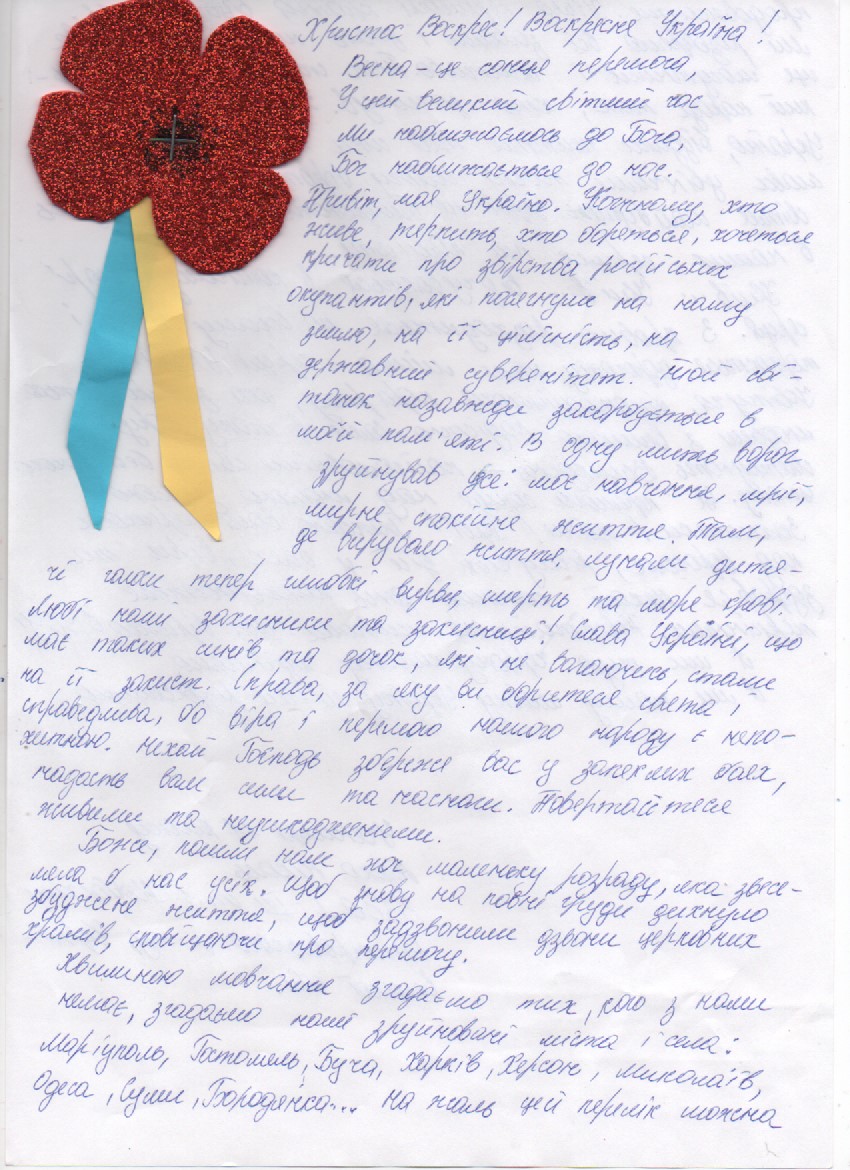 Христос Воскрес! Воскресне Україна!
Весна – це сонце перемога,
У цей великий світлий час
Ми наближаємось до Бога,
Бог наближається до нас.
Привіт, моя Україно. Кожному, хто
живе, терпить, хто бореться, хочеться
кричати про звірства російських
окупантів, які посягнули на нашу
землю, на її цілісність, на
державний суверенітет. Той сві-
танок назавжди закарбується в
моїй пам'яті. В одну мить ворог
зруйнував усе: моє навчання, мрії,
мирне спокійне життя. Там,
де вирувало життя, лунали дитя-
чі голоси тепер глибокі вирви, смерть та море крові.
Любі наші захисники та захисниці! Слава Україні, що
має таких синів та дочок, які не вагаючись, стали
на її захист. Справа, за яку ви боритеся свята і
справедлива, бо віра і перемога нашого народу є непо-
хитною. Нехай Господь збереже вас у запеклих боях,
надасть вам сили та наснаги. Повертайтеся
живими та неушкодженими.
Боже, пошли нам хоч маленьку розраду, яка звесе-
лила б нас усіх. Щоб знову на повні груди дихнуло
збуджене життя, щоб задзвонили дзвони церковних
храмів, сповіщаючи про перемогу.
Хвилиною мовчання згадаємо тих, кого з нами
немає, згадаємо наші зруйновані міста і села:
Маріуполь, Гостомель, Буча, Харків, Херсон, Миколаїв,
Одеса, Суми, Бородянка... на жаль цей перелік можна